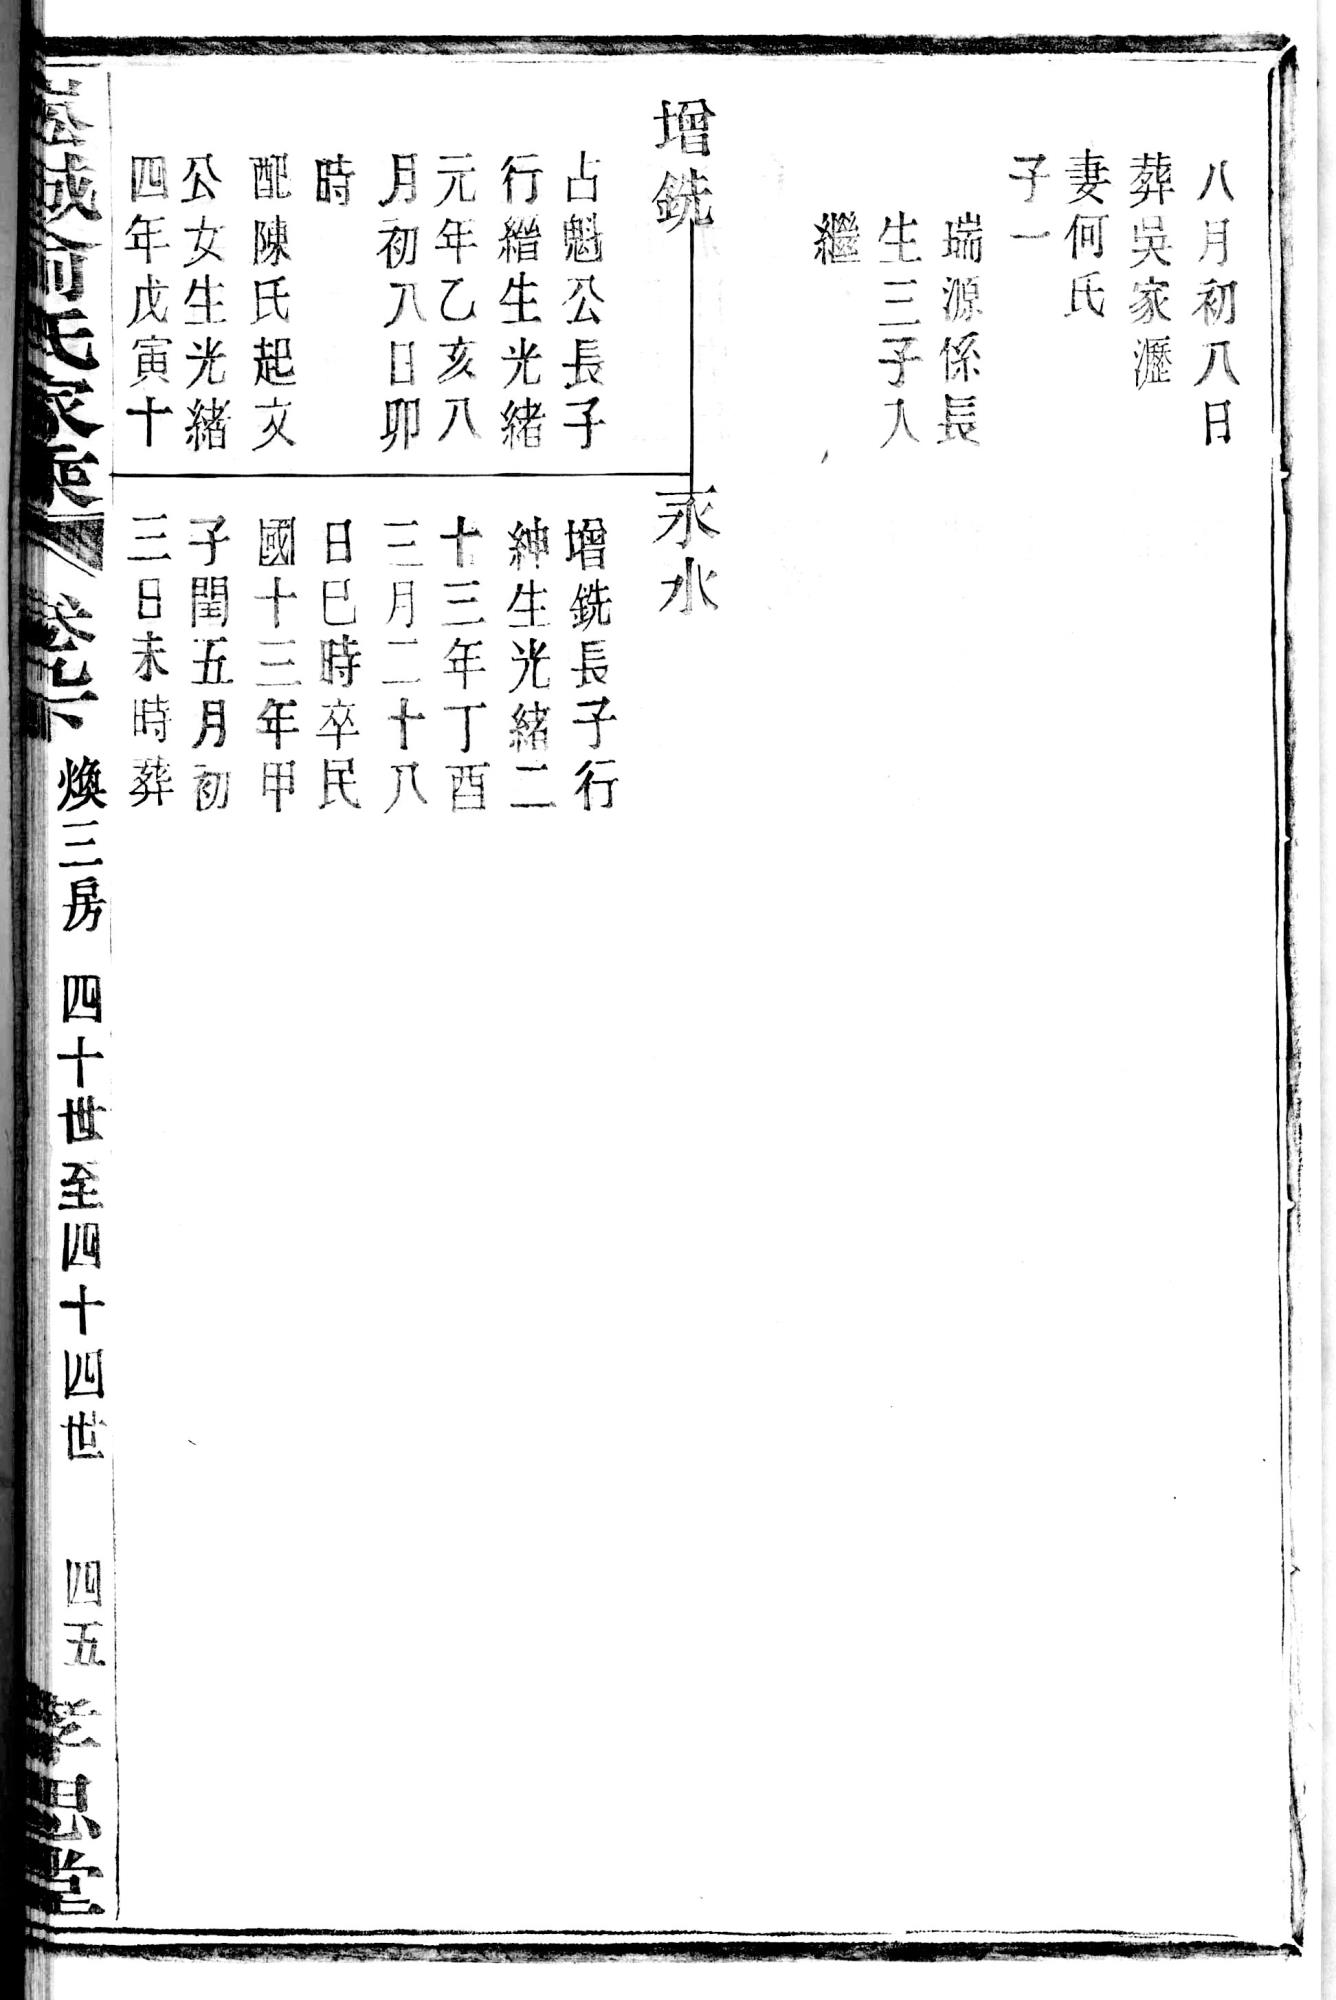 八月初八日
葬吳家瀝
妻何氏
子一
瑞源係長
生三子入
繼
增銑
占魁公長子
行縉生光緒
元年乙亥八
月初八日卯
時
配陳氏起文
公女生光緒
四年戊寅十
永水
增銑長子行
紳生光緒二
十三年丁酉
三月二十八
日巳時卒民
國十三年甲
子閏五月初
三日未時葬
俞氏家乘
卷九下
煥三房 四十世至四十四世 四五
孝思堂